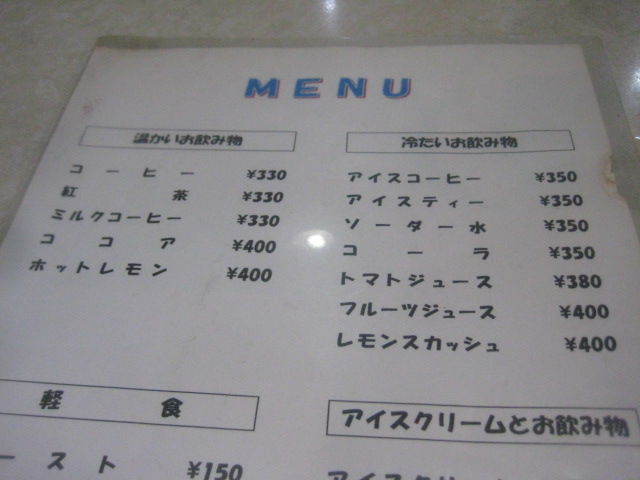 MENU
温かいお飲み物
コーヒー ¥330
紅茶 ¥330
ミルクコーヒー ¥330
ココア ¥400
ホットレモン ¥400
冷たいお飲み物
アイスコーヒー ¥350
アイスティー ¥350
ソーダー水 ¥350
コーラ ¥350
トマトジュース ¥380
フルーツジュース ¥400
レモンスカッシュ ¥400
軽食
ースト ¥150
アイスクリームとお飲み物